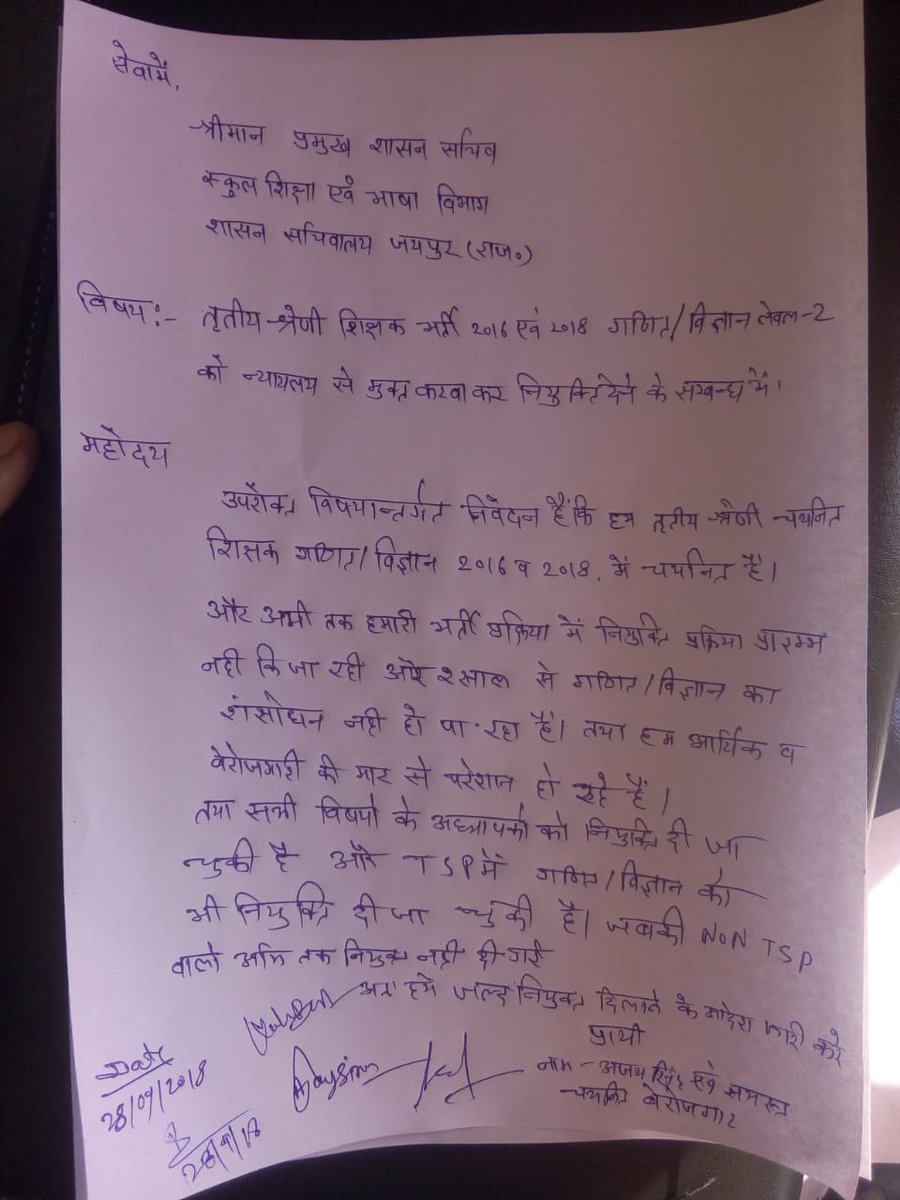 सेवामें,
श्रीमान प्रमुख शासन सचिव
स्कुल शिक्षा एवं भाषा विभाग
शासन सचिवालय जयपुर (राज०)
विषय:- तृतीय-श्रेणी शिक्षक भर्ती २०१6 एवं २०१8 गणित/विज्ञान लेवल-2
को न्यायलय से मुक्त करवाकर नियुक्ति देने के सम्बन्ध में।
महोदय
उपरोक्त विषयान्तर्गत निवेदन है कि हम तृतीय श्रेणी चयनित
शिक्षक गणित/विज्ञान २०16 व २018, में चयनित है।
और अभी तक हमारी भर्ती प्रक्रिया में नियुक्ति प्रक्रिया प्रारम्भ
नही कि जा रही और २ साल से गणित/विज्ञान का
शंसोधन नही हो पा रहा है। तथा हम आर्थिक व
बेरोजगारी की मार से परेशान हो रहे है।
तथा सभी विषयो के अध्यापको को नियुक्ति दी जा
चुकी है और TSP में गणित/विज्ञान को
भी नियुक्ति दी जा चुकी है। जबकी NON TSP
वालो अभि तक नियुक्त नही दी गई
अतः हमे जल्द नियुक्त दिलाने के आदेश जारी करे
प्रार्थी
नाम - अजय सिंह एवं समस्त
चयनित बेरोजगार
Date
28/09/2018
28/9/18